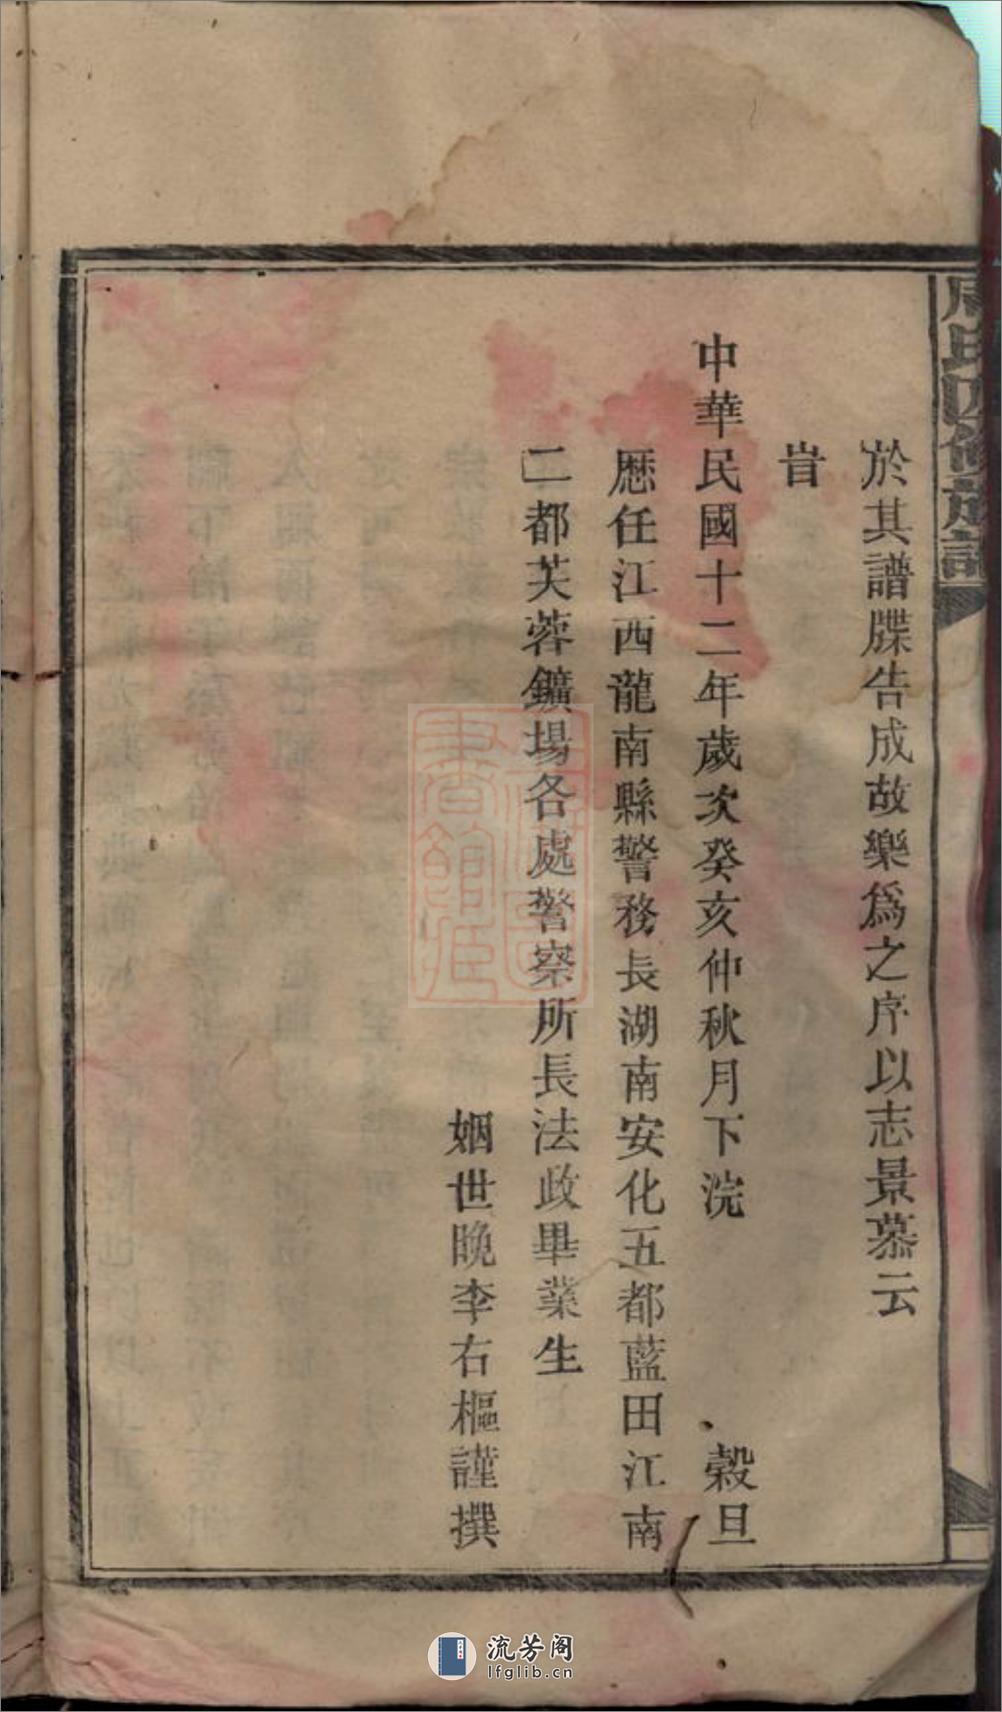 周氏四修族譜
於其譜牒告成故樂爲之序以志景慕云
旹
中華民國十二年歲次癸亥仲秋月下浣 穀旦
歷任江西龍南縣警務長湖南安化五都藍田江南
二都芙蓉鑛場各處警察所長法政畢業生
姻世晚李右樞謹撰
流芳阁
lfglib.cn